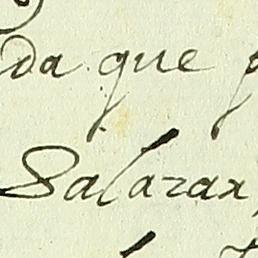 da que
Salazar,